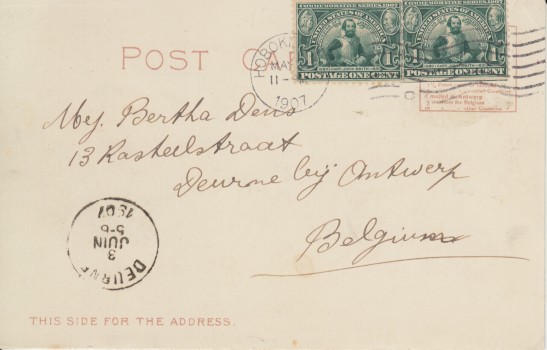 COMMEMORATIVE SERIES 1907
UNITED STATES OF AMERICA
1 1
POSTAGE ONE CENT
COMMEMORATIVE SERIES 1907
UNITED STATES OF AMERICA
1 1
POSTAGE ONE CENT
POST
HOBOK
MA
11
1907
Mej. Bertha Dens
13 Rasteelstraat
Deurne bij Antwerp
Belgium
DEURNE
3
JUIN
5-6
1907
THIS SIDE FOR THE ADDRESS.